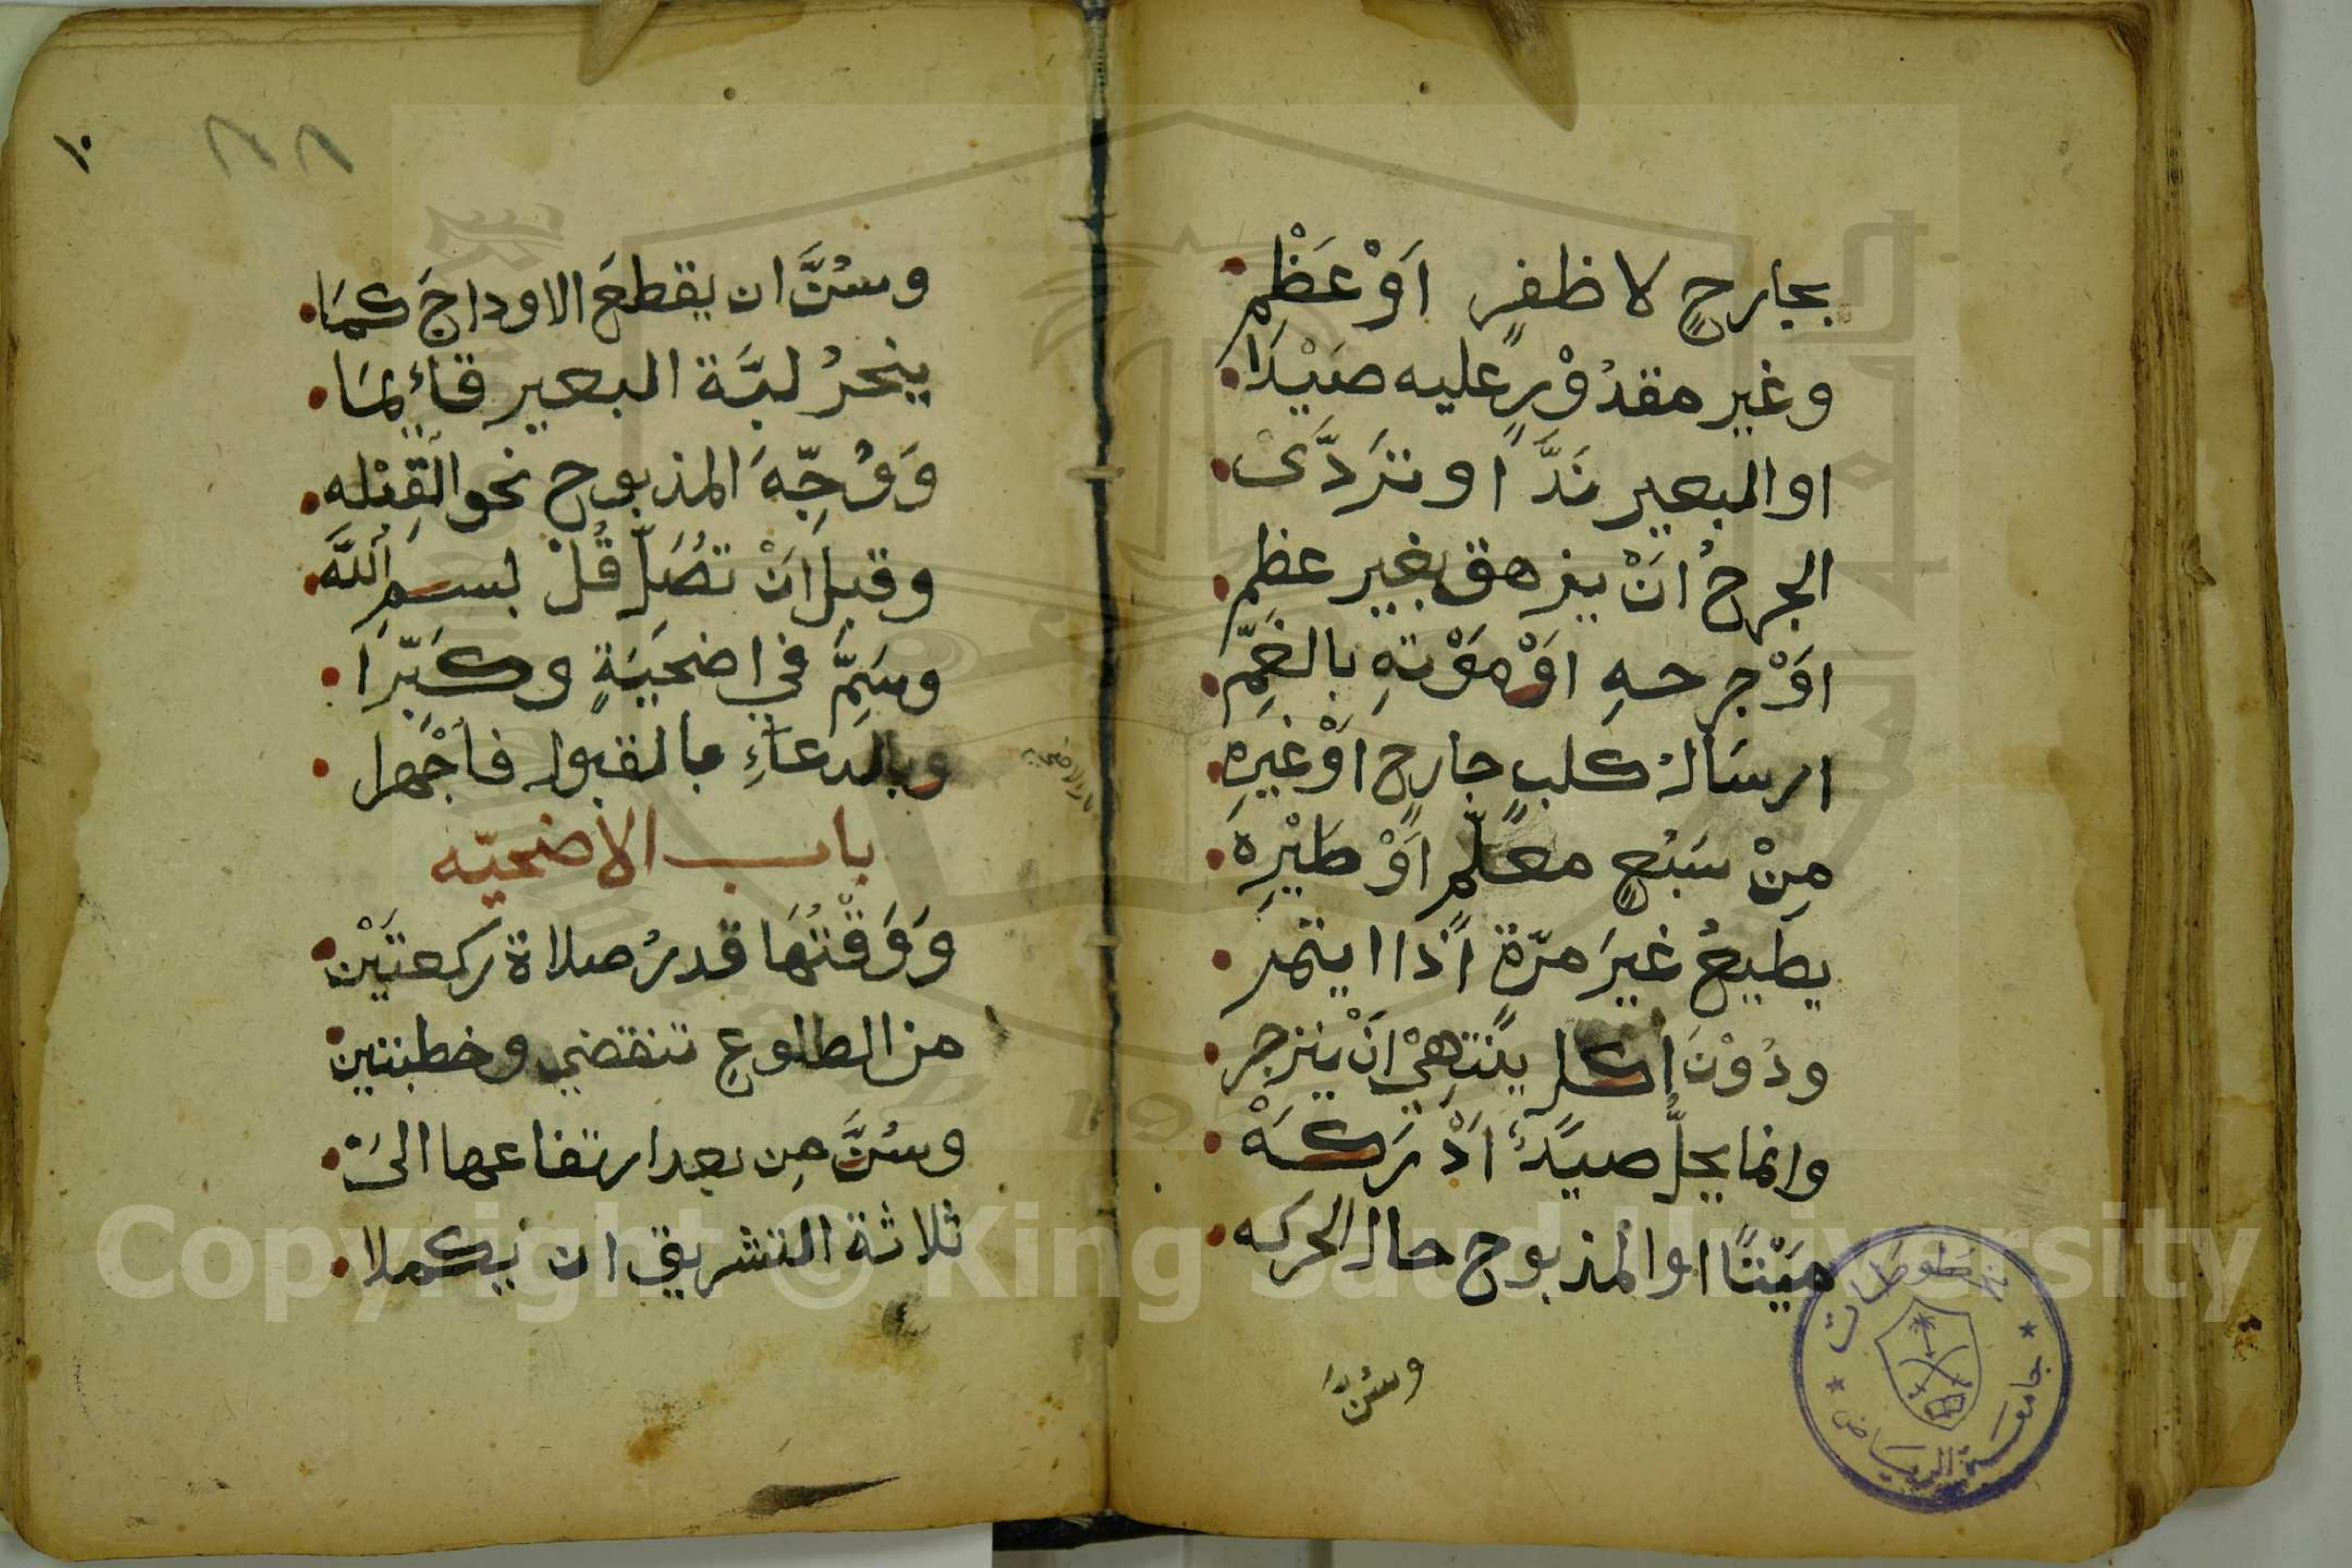 بجارحٍ لا ظفرٍ اَوْ عَظْمِ
وغير مقدُوْرٍ عليه صَيْدَا
او البعير نَدَّ او تَرَدَّىْ
الجرحُ اَنْ يزهق بغير عظم
اَوْ جرحهِ اوْ مَوْتهِ بالغَمِّ
ارسَالُ كلبٍ جارحٍ اَوْ غيرِهِ
مِنْ سَبُعٍ معلّمٍ اَوْ طَيْرِهِ
يطيعُ غيرَ مرّةٍ اذا ايتمر
ودُوْنَ اكل ينتهِيْ اَنْ ينزجر
وانما يحلُّ صيدٌ اَدْرَكَهْ
مَيْتًا او المذبوح حال الحركه
وسُنَّ
١٠
وسُنَّ ان يقطعَ الاوداجَ كمَا
ينحرُ لبَّة البعير قائِمَا
وَوُجِّهَ المذبوح نحو القِبْله
وقبل اَنْ تصَلِّ قُلْ بسمِ اللَّه
وسَمِّ في اضحيَةٍ وكَبِّرَا
وبالدعاءِ بالقبول فاجْهرا
باب الأضحيّه
وَوَقْتُهَا قدرُ صلاة ركعتَيْن
من الطلوعِ تنقضي وخطبتين
وسُنَّ مِن بعد ارتفاعها الىَ
ثلاثة التشريق ان يكملا
مخطوطات
جامعة الرياض
Copyright © King Saud University